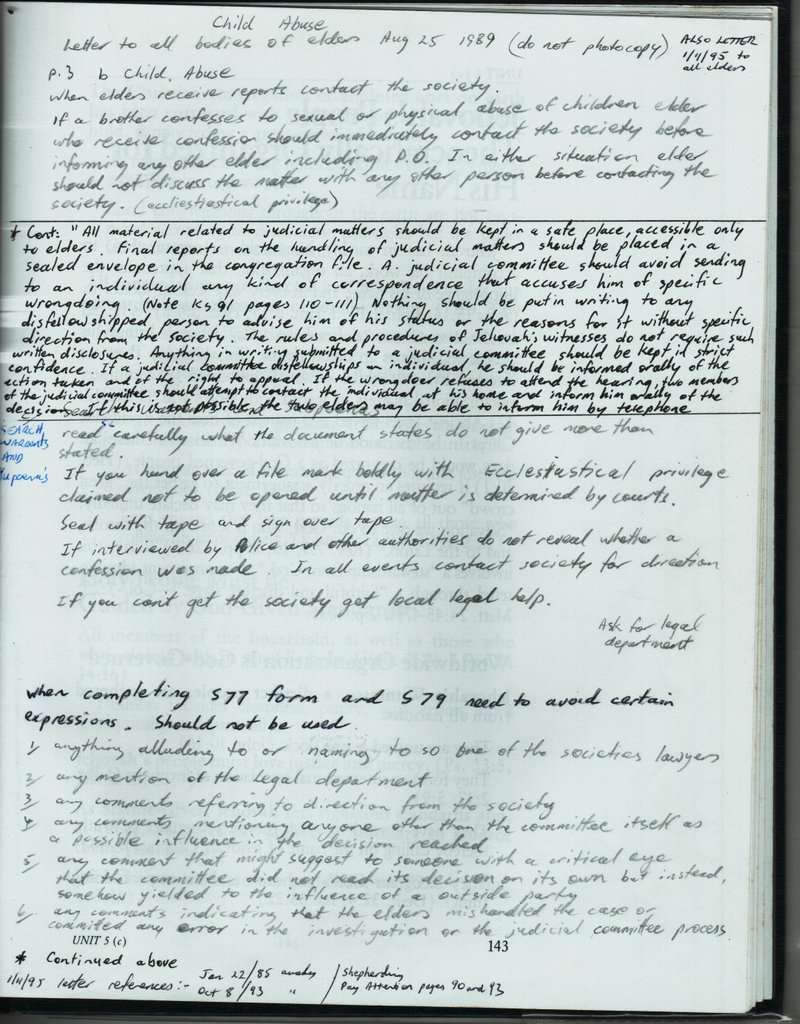 Child Abuse
Letter to all bodies of elders Aug 25 1989 (do not photocopy)
ALSO LETTER
1/11/95 to
all elders
p.3 b Child. Abuse
when elders receive reports contact the society.
If a brother confesses to sexual or physical abuse of children elder
who receive confession should immediately contact the society before
informing any other elder including P.O. In either situation elder
should not discuss the matter with any other person before contacting the
society. (accliestiastical privilege)
* Cont: "All material related to judicial matters should be kept in a safe place, accessible only
to elders. Final reports on the handling of judicial matters should be placed in a
sealed envelope in the congregation file. A. judicial committee should avoid sending
to an individual any kind of correspondence that accuses him of specific
wrongdoing. (Note Ks 91 pages 110-111) Nothing should be put in writing to any
disfellowshipped person to advise him of his status or the reasons for it without specific
direction from the society. The rules and procedures of Jehovah's witnesses do not require such
written disclosures. Anything in writing submitted to a judicial committee should be kept in strict
confidence. If a judicial committee disfellowships an individual, he should be informed orally of the
action taken and of the right to appeal. If the wrongdoer refuses to attend the hearing, two members
of the judicial committee should attempt to contact the individual at his home and inform him orally of the
decision. If this is not possible, the two elders may be able to inform him by telephone
SEARCH,
WARRANTS
AND
read carefully what the document states do not give more than
stated.
If you hand over a file mark boldly with Ecclestastical privilege
claimed not to be opened until matter is determined by courts.
Seal with tape and sign over tape.
If interviewed by Police and other authorities do not reveal whether a
confession was made. In all events contact society for direction
If you can't get the society get local legal help.
Ask for legal
department
when completing S77 form and S79 need to avoid certain
expressions. Should not be used.
1/ anything alluding to or naming to so one of the societies lawyers
2/ any mention of the legal department
3/ any comments referring to direction from the society
4/ any comments mentioning anyone other than the committee itself as
a possible influence in the decision reached
5/ any comment that might suggest to someone with a critical eye
that the committee did not reach its decision on its own but instead,
somehow yielded to the influence of a outside party
6/ any comments indicating that the elders mishandled the case or
commited any error in the investigation or the judicial committee process.
UNIT 5 (c)
143
* Continued above
1/11/95 letter references:- Jan 22/85 awake / Shepherding
Oct 8/93 " / Pay Attention pages 90 and 93